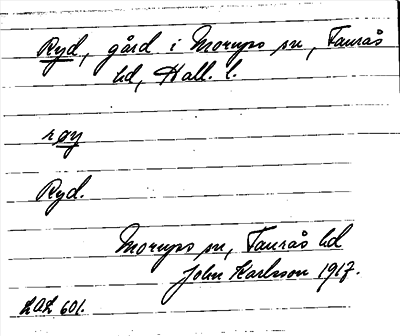 Ryd, gård i Morups sn, Faurås
hd, Hall. l.
røy
Ryd.
Morups sn, Faurås hd
John Karlsson 1917.
LAL 601.